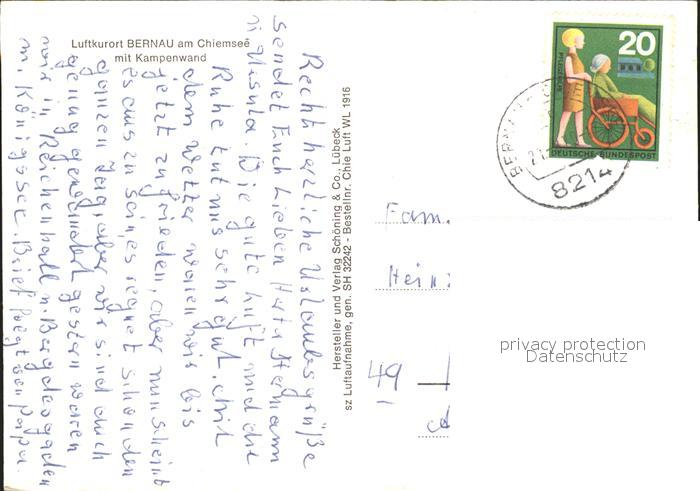 Luftkurort BERNAU am Chiemsee
mit Kampenwand
Recht herzliche Urlaubsgrüße
sendet Euch Lieben Herta Hermann
u. Ursula. Die gute Luft und die
Ruhe tut uns sehr gut. Mit
dem Wetter waren wir bis
jetzt zufrieden, aber nun scheint
es aus zu sein, es regnet schon den
ganzen Tag, aber wir sind auch
genug gewandert gestern waren
wir in Reichenhall u. Berchtesgaden
u. Königssee. Brief folgt von Papa.
Hersteller und Verlag Schöning & Co., Lübeck
sz Luftaufnahme, gen. SH 32242 - Bestellnr. Chie Luft WL 1916
20
DEUTSCHE BUNDESPOST
BERNAU
8214
Fam.
Hein
49
privacy protection
Datenschutz